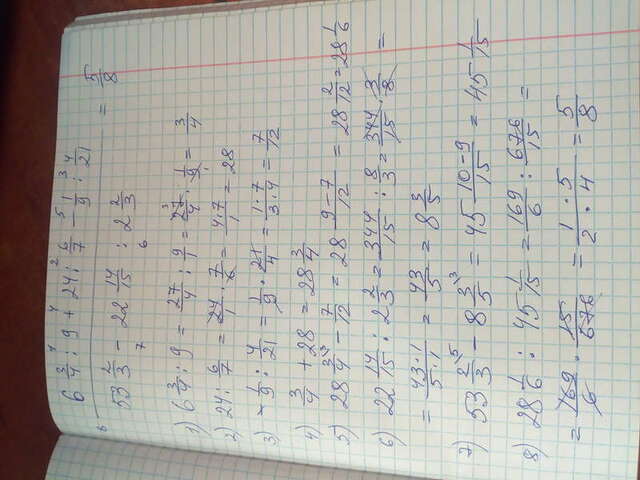 6 3/4 : 9 + 24 : 6/7 - 1/9 : 4/21
53 2/3 - 22 14/15 : 2 2/3 = 5/8
1) 6 3/4 : 9 = 27/4 : 9/1 = 27/4 · 1/9 = 3/4
2) 24 : 6/7 = 24/1 · 7/6 = 4·7/1 = 28
3) 1/9 : 4/21 = 1/9 · 21/4 = 1·7/3·4 = 7/12
4) 3/4 + 28 = 28 3/4
5) 28 3/4 - 7/12 = 28 9-7/12 = 28 2/12 = 28 1/6
6) 22 14/15 : 2 2/3 = 344/15 : 8/3 = 344/15 · 3/8 =
= 43·1/5·1 = 43/5 = 8 3/5
7) 53 2/3 - 8 3/5 = 45 10-9/15 = 45 1/15
8) 28 1/6 : 45 1/15 = 169/6 : 676/15 =
= 169/6 · 15/676 = 1·5/2·4 = 5/8